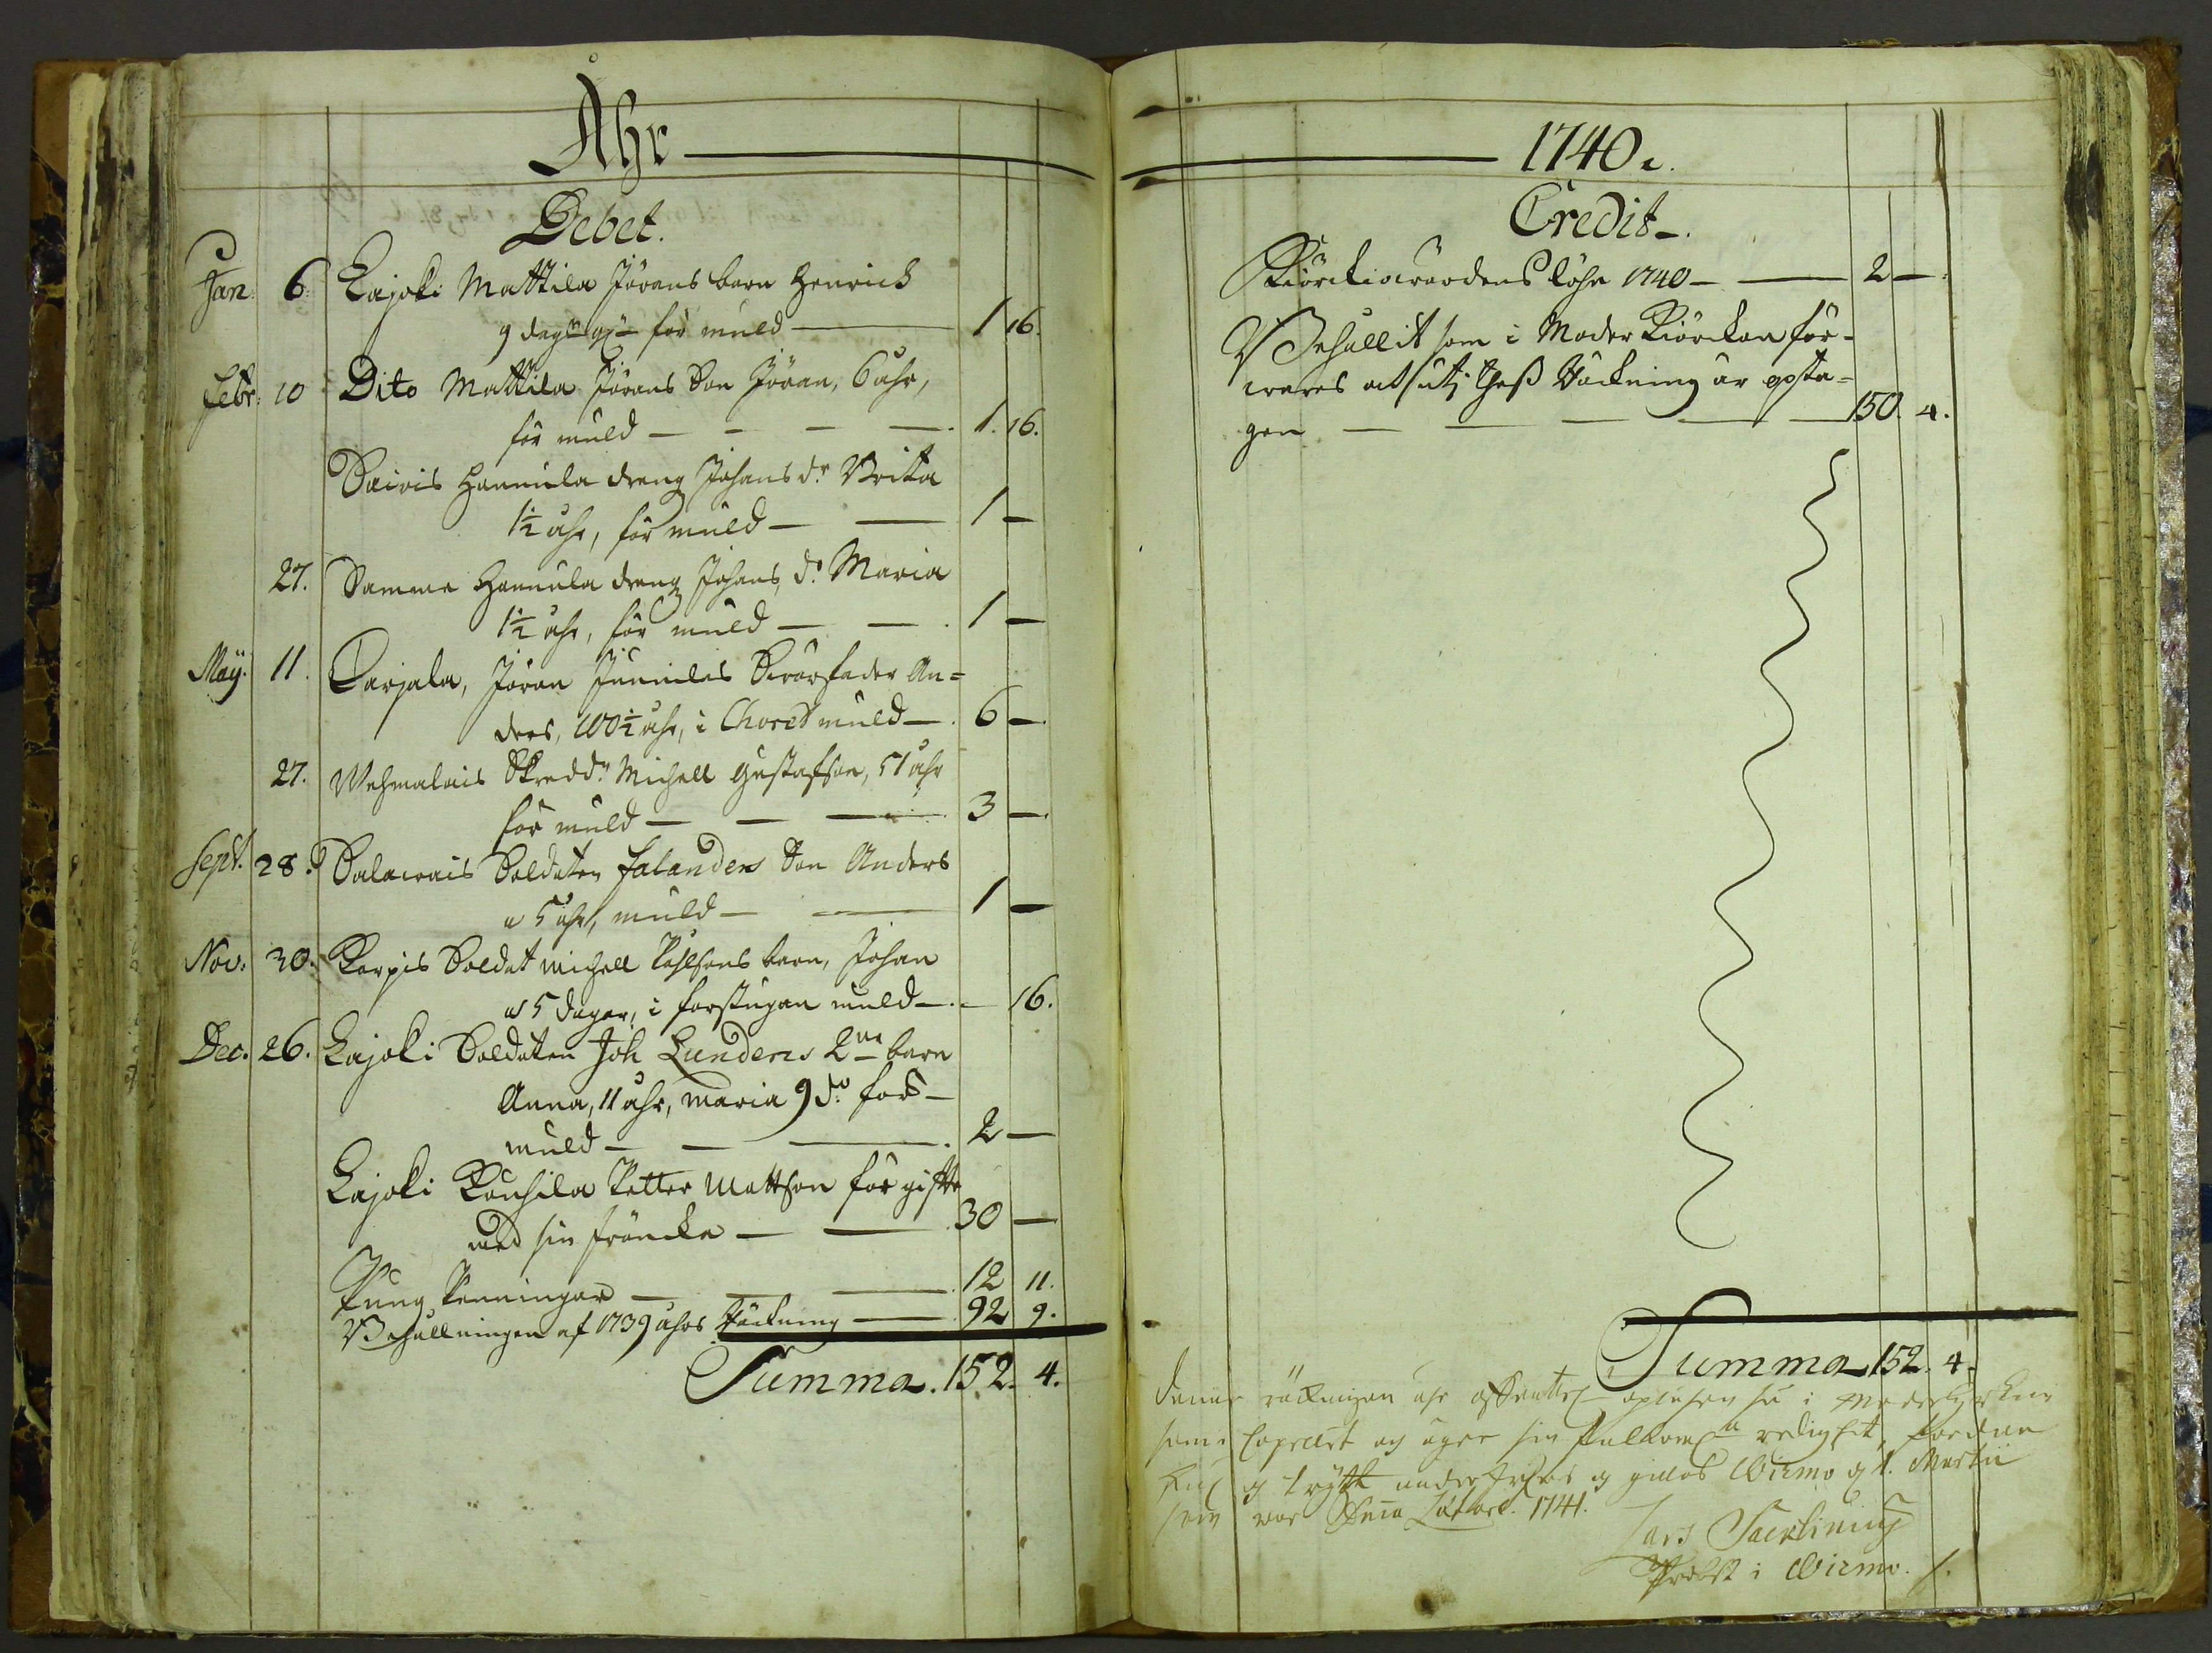 Åhr
Debet.
Jan: 6. Lajoki Mattila Jörans barn Henrick
9 dag: för muld — 1 16.
Febr: 10 Dito Mattila Jörans Son Jöran, 6 åhr,
för muld — — — — 1. 16.
Saivis Hannula dreng Johans dr Brita
1½ åhr, för muld — — 1 —
27. Samma Hannula dreng Johans do Maria
1½ åhr, för muld — — 1 —
Maÿ. 11. Carjala, Jöran Junnilas Swärfader An=
ders, 100½ åhr, i Choret muld — 6 —
27. Wehmalais Skreddn Michell Gustafson, 51 åhr
för muld — — — 3 —
Sept. 28. Salavais Soldaten Falanders Son Anders
a 5 åhr, muld — — 1 —
Nov. 30. Korpis Soldat Michell Påhlsons barn, Johan
a 5 dagar, i forstugan muld — — 16.
Dec. 26. Lajoki Soldaten Joh Lunders 2ne barn
Anna, 11 åhr, Maria 9 do för —
muld — — — 2 —
Lajoki Kouhila Petter Mattson för gifte
med sin fräncka — — 30 —
Pung Penningar — — — 12 11.
Behållningen af 1739 åhrs Räckning — 92 9.
Summa. 152. 4.
1740.
Credit.
Kiörckiowärdens löhn 1740 — — 2 —
Behållit som i Moder Kiörckan för-
wares att uti thess Räckning är opta=
gen — — — — — 150. 4.
Summa 152. 4.
denne räckningen ähr offentel. opläsen så i Moderkyrkan
som Capellet och äger sin redighet,
och underskrifves och Wirmo d 1. Martii
som war 1741.
Lars
Probst i Wirmo.